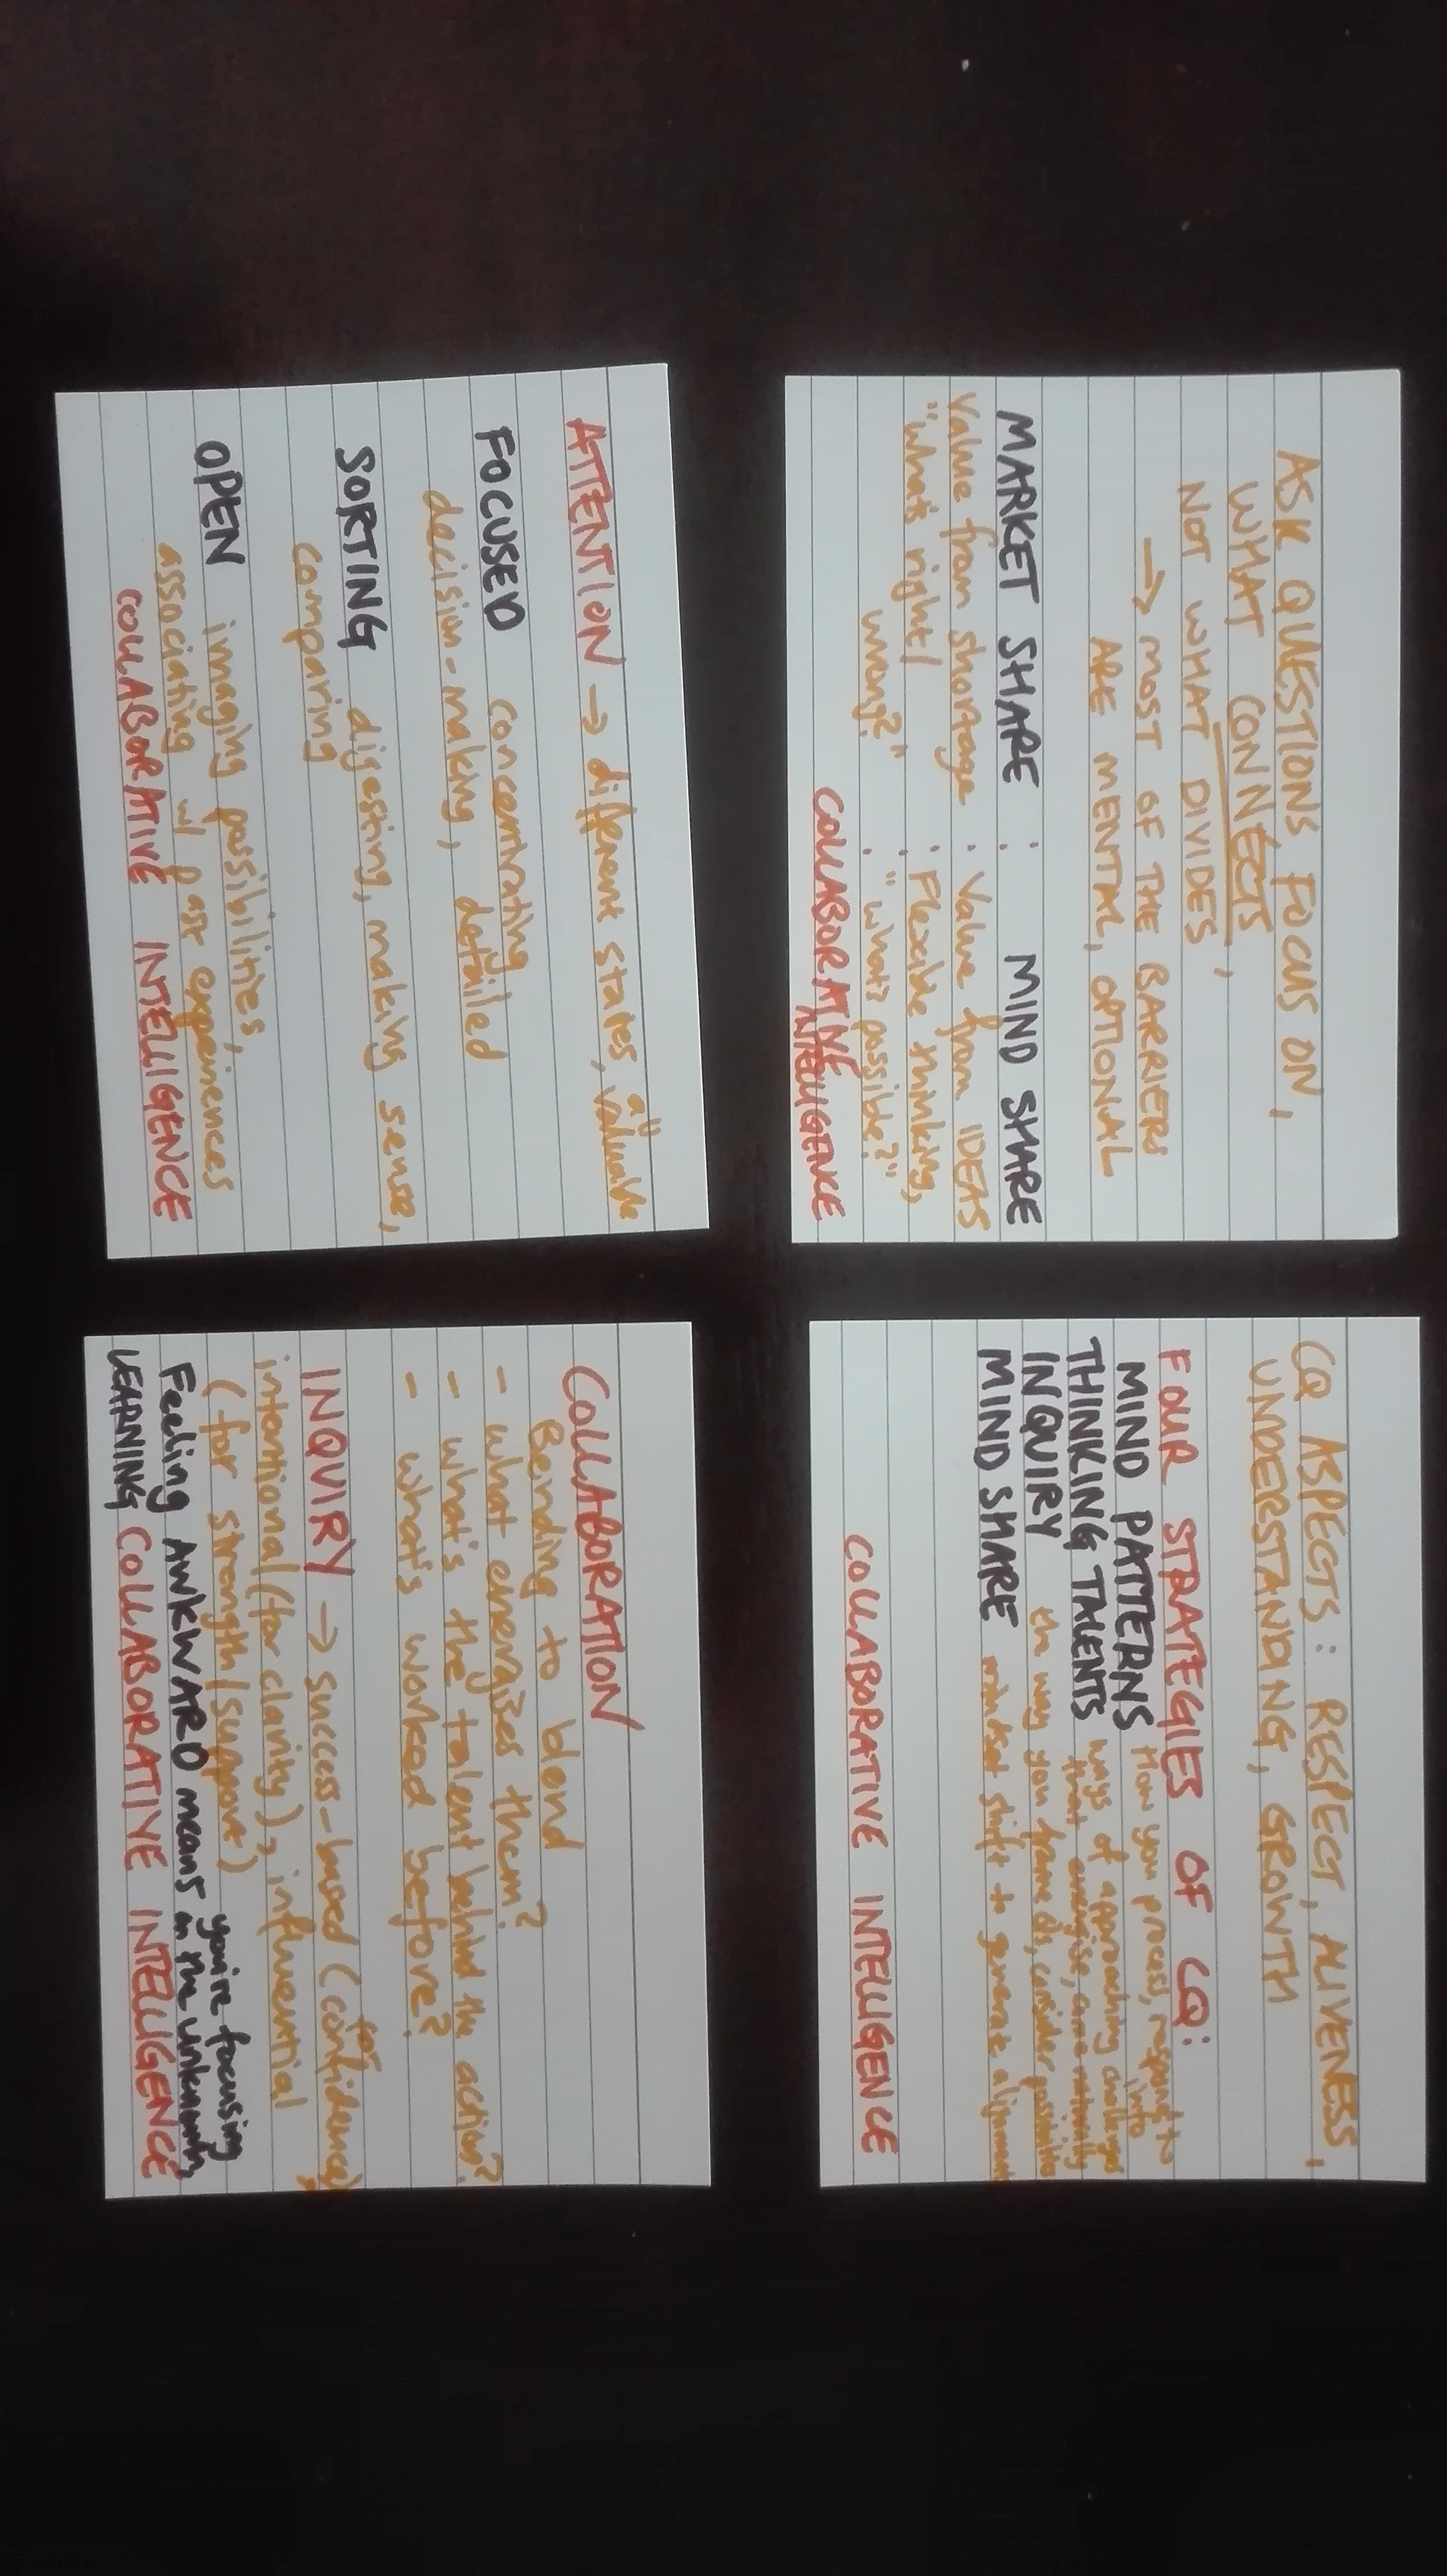 ASK QUESTIONS, FOCUS ON,
WHAT CONNECTS,
NOT WHAT DIVIDES
→ MOST OF THE BARRIERS
ARE MENTAL, OPTIONAL
MARKET SHARE : MIND SHARE
Value from shortage : Value from IDEAS
"what's right/ : Flexible thinking,
wrong?" : "what's possible?"
COLLABORATIVE
INTELLIGENCE
CQ ASPECTS: RESPECT, ALIVENESS,
UNDERSTANDING, GROWTH
FOUR STRATEGIES OF CQ:
MIND PATTERNS How you process, respond to
info
THINKING TALENTS ways of approaching challenges
that energise, come naturally
INQUIRY the way you frame Qs, consider possibilities
MIND SHARE mindset shift to generate alignment
COLLABORATIVE INTELLIGENCE
ATTENTION → different states, all
valuable
FOCUSED concentrating,
decision-making, detailed
SORTING digesting, making sense,
comparing
OPEN imaging possibilities,
associating w/ past experiences
COLLABORATIVE INTELLIGENCE
COLLABORATION
Bending to blend
- what energizes them?
- what's the talent behind the action?
- what's worked before?
INQUIRY → success-based (for confidence),
intentional (for clarity), influential
(for strength/support)
Feeling AWKWARD means you're focusing
on the unknown,
LEARNING COLLABORATIVE INTELLIGENCE